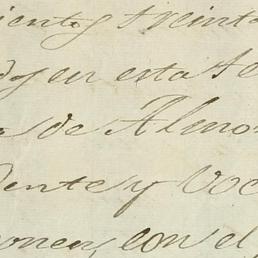 ientos treinta
dos en esta Se
a de Almo
dente y Voc
ponen, con el